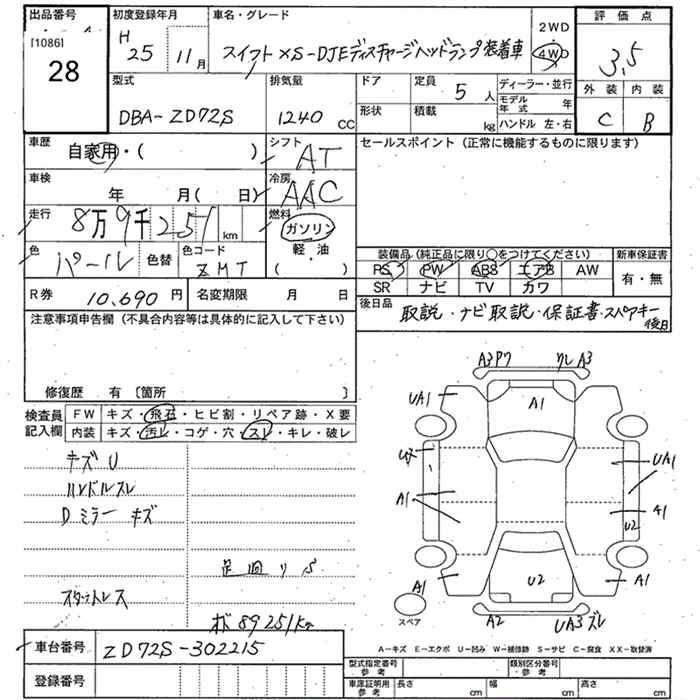 出品番号
[1086]
28
初度登録年月
H 25 11月
車名・グレード
スイフト XS-DJEディスチャージヘッドランプ装着車
2WD
4WD
評価点
3,5
外装 内装
C B
型式
DBA-ZD72S
排気量
1240 cc
ドア
形状
定員
5人
積載
kg
ディーラー・並行
モデル年式 年
ハンドル 左・右
車歴
自家用・( )
車検
年 月( 日)
走行
8万9千251km
色
パール
色替
色コード
ZMT
シフト
AT
冷房
AAC
燃料
ガソリン
軽・油
( )
セールスポイント (正常に機能するものに限ります)
装備品 (純正品に限り○をつけてください)
PS PW ABS エアB AW
SR ナビ TV カワ
新車保証書
有・無
R券 10,690円
名変期限 月 日
後日品
取説・ナビ取説・保証書・スペアキー
後日
注意事項申告欄 (不具合内容等は具体的に記入して下さい)
修復歴 有 〔箇所 〕
検査員記入欄
FW キズ・飛石・ヒビ割・リペア跡・X要
内装 キズ・汚レ・コゲ・穴・スレ・キレ・破レ
キズU
ハンドルスレ
Dミラーキズ
足廻リS
スタットレス
メ 89251km
A3 A3
UA1
A1
UA1
A1
A1
U2
A1
U2
A1
A2
UA3 ズレ
スペア
A-キズ E-エクボ U-凹み W-補修跡 S-サビ C-腐食 XX-取替済
車台番号
ZD72S-302215
登録番号
型式指定番号・参考
類別区分番号・参考
車庫証明用参考
長さ cm
幅 cm
高さ cm